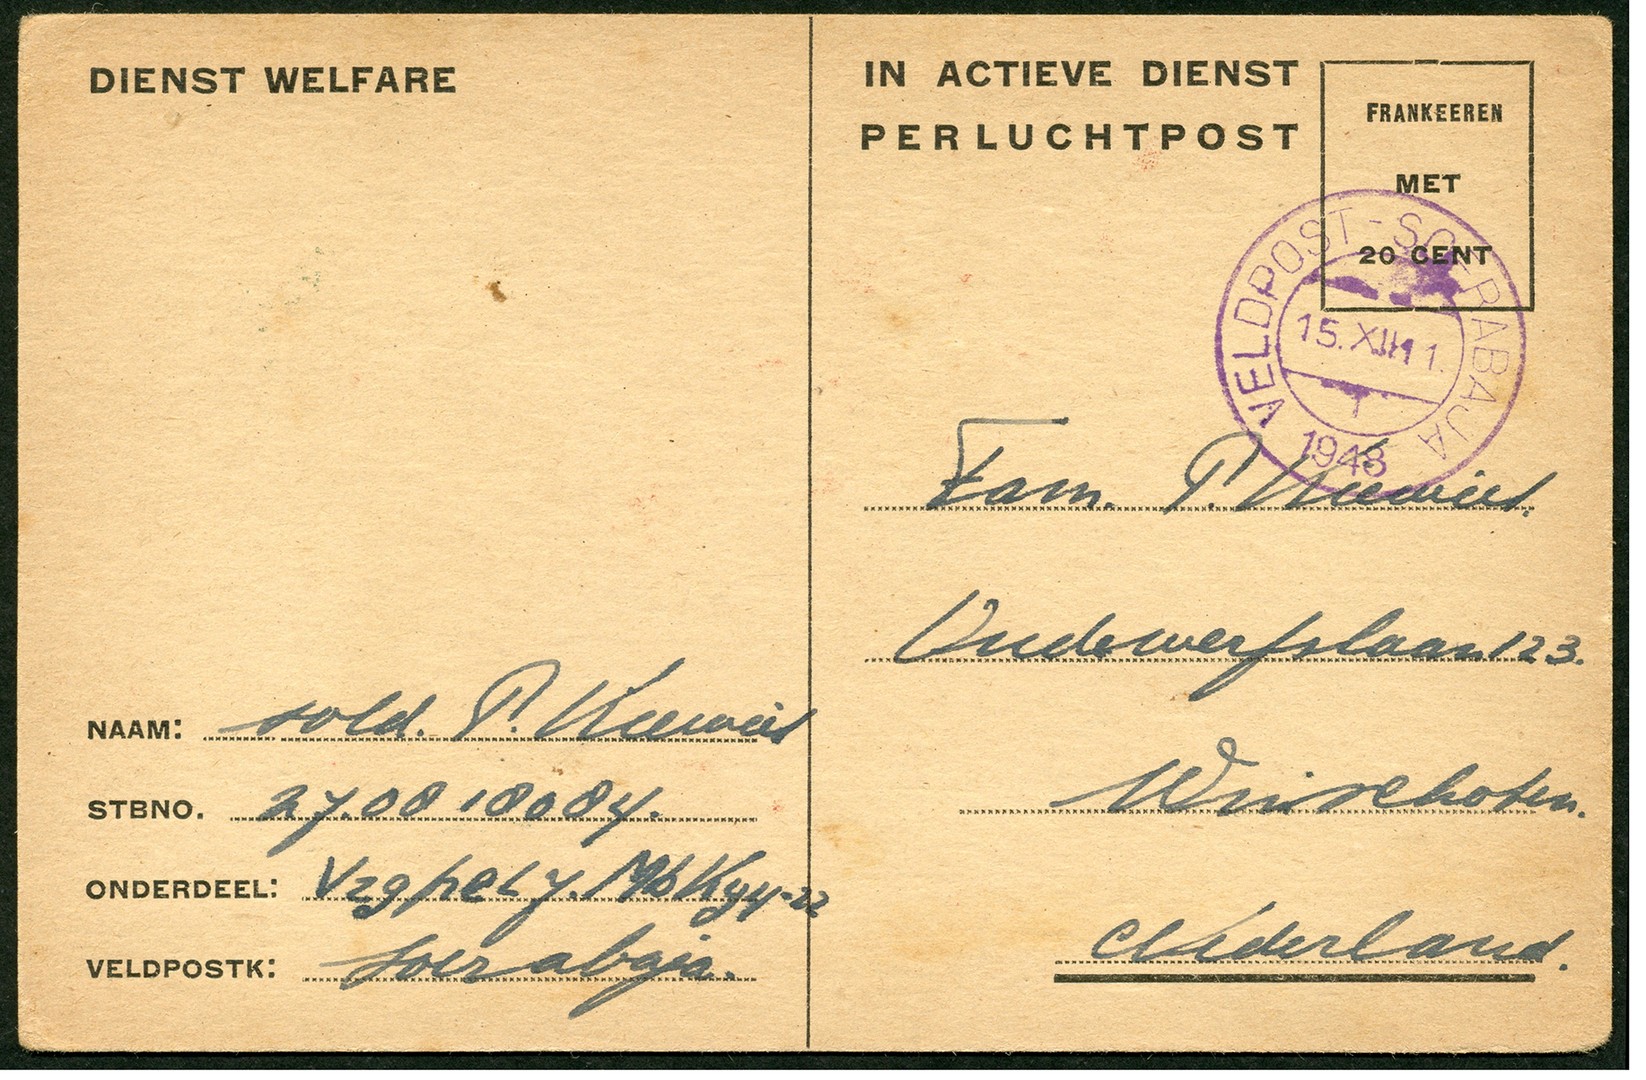 DIENST WELFARE
NAAM: sold. P. Kiewiet
STBNO. 27.08 18084.
ONDERDEEL:
VELDPOSTK: Soerabaja.
IN ACTIEVE DIENST
PER LUCHTPOST
FRANKEEREN
MET
20 CENT
VELDPOST-SOERABAJA
15.XII
1948
Fam. P. Kiewiet.
Oudewerfslaan 123.
Winschoten.
Nederland.